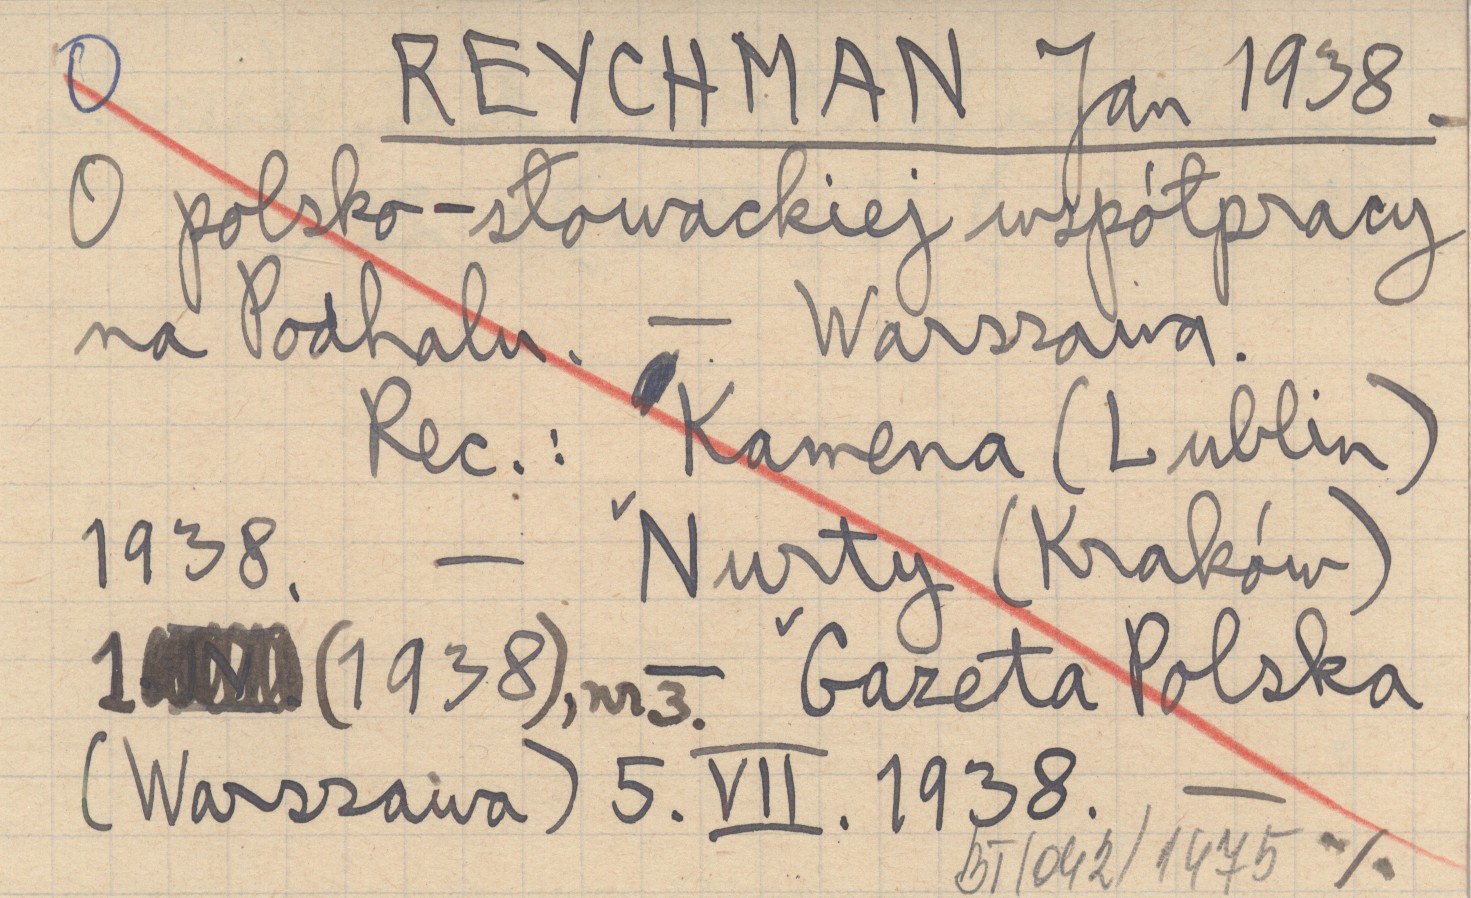 O REYCHMAN Jan 1938.
O polsko-słowackiej współpracy
na Podhalu. — Warszawa.
Rec.: Kamena (Lublin)
1938. — Nurty (Kraków)
1 (1938), nr 3. — Gazeta Polska
(Warszawa) 5. VII. 1938. —
BT/042/1475 ·/.